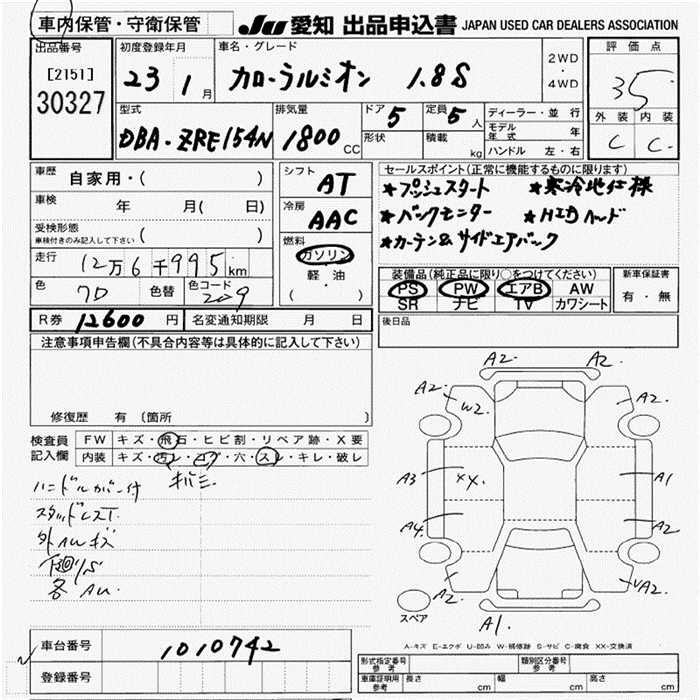 車内保管・守衛保管 JU 愛知 出品申込書 JAPAN USED CAR DEALERS ASSOCIATION
出品番号
[2151]
30327
初度登録年月
23 1 月
車名・グレード
カローラルミオン 1.8S
2WD
・
4WD
評価点
35
外装 内装
C C
型式
DBA-ZRE154N
排気量
1800 CC
ドア 5
形状
定員 5 人
積載 kg
ディーラー・並行
モデル年式 年
ハンドル 左・右
車歴 自家用・( )
車検 年 月( 日)
受検形態
車検付きのみ記入して下さい ( )
走行 12万6千995km
色 7D 色替 色コード 209
R券 12600 円 名変通知期限 月 日
シフト
AT
冷房
AAC
燃料
ガソリン
軽・油
( )
セールスポイント(正常に機能するものに限ります)
★プッシュスタート ★寒冷地仕様
★バックモニター ★HIDヘッド
★カーテン&サイドエアバック
装備品(純正品に限り○をつけてください)
PS PW エアB AW
SR ナビ TV カワシート
新車保証書
有・無
後日品
注意事項申告欄(不具合内容等は具体的に記入して下さい)
修復歴 有(箇所 )
検査員記入欄
FW キズ・飛石・ヒビ割・リペア跡・X要
内装 キズ・汚レ・コゲ・穴・スレ・キレ・破レ
ハンドルカバー付
スタッドレスT
外AUキズ
下廻りS
A2 A2
A2 W2 A2
A3 XX A1
A4 A2
A2 VA2
A1
スペア
A-キズ E-エクボ U-凹み W-補修跡 S-サビ C-腐食 XX-交換済
車台番号 1010742
登録番号
型式指定番号 参考
類別区分番号 参考
車庫証明用 参考 長さ cm 幅 cm 高さ cm